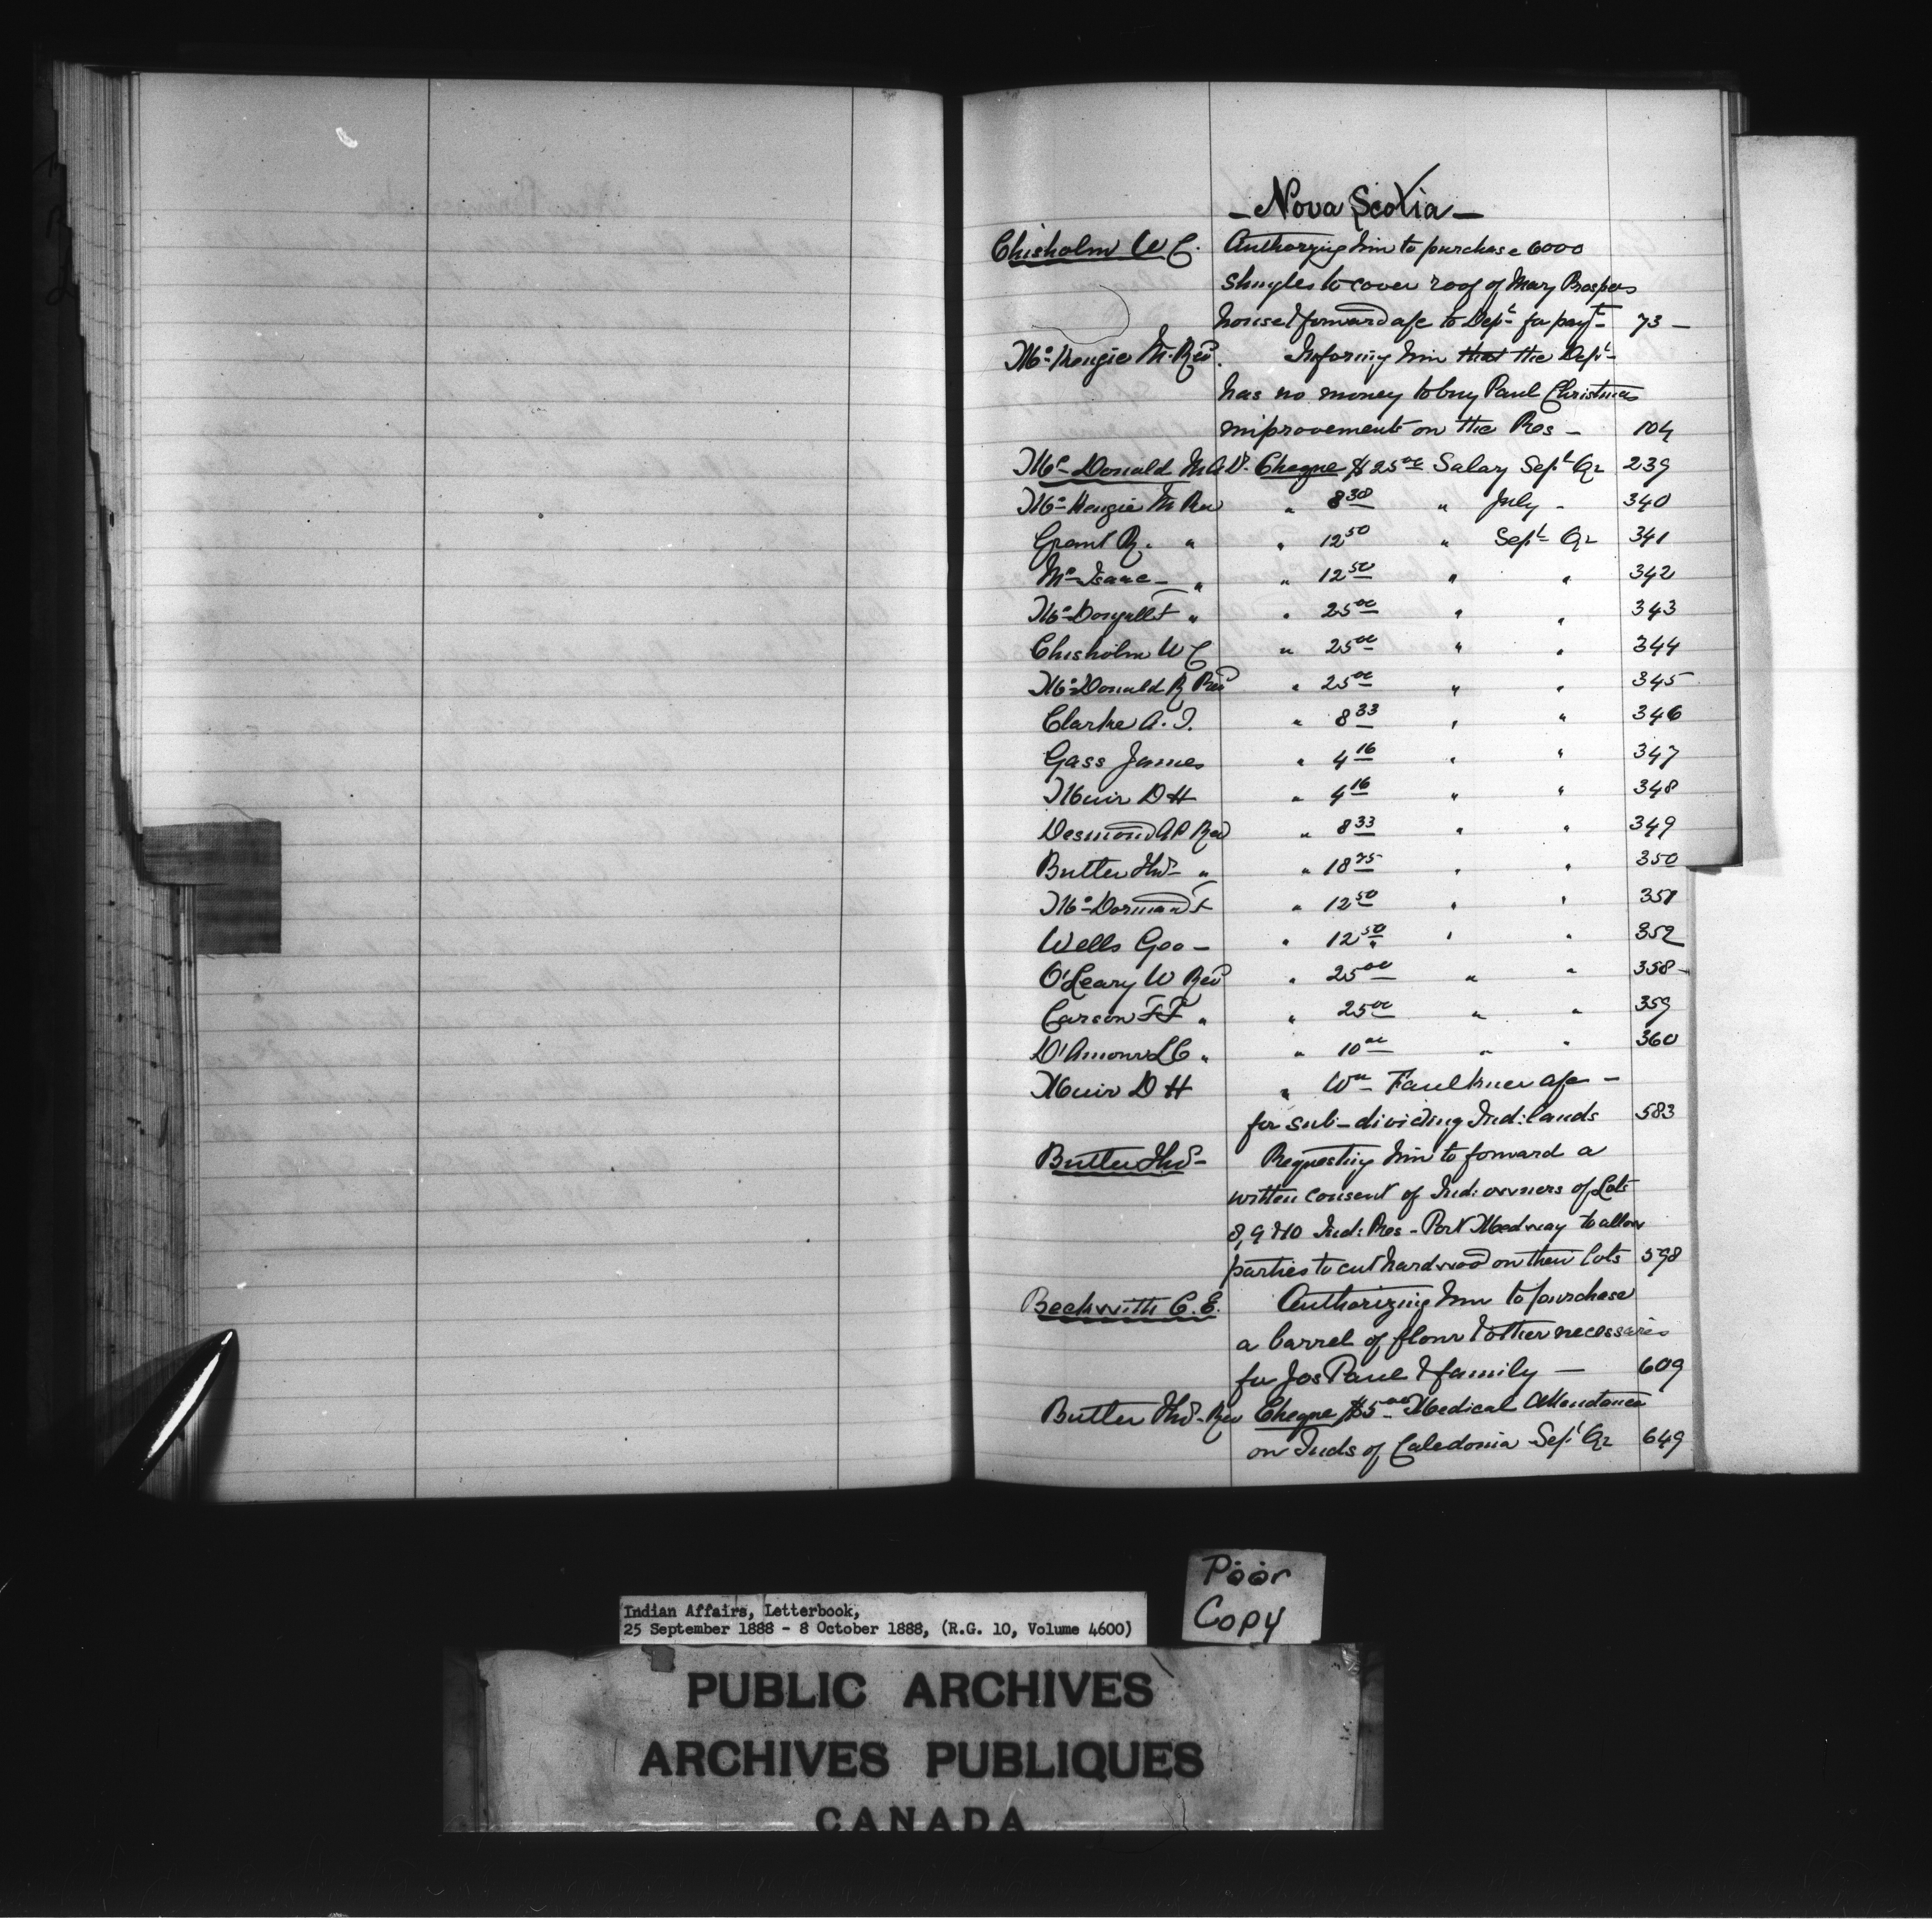 - Nova Scotia -
Chisholm W C. Authorzing him to purchase 6000
shingles to cover roof of Mary Prospers
house & forward a/c to Dept for payt - 73 -
McKenzie M. Revd. Informing him that the Dept
has no money to buy Paul Christmas
improvements on the Res - 104
McDonald M A Dr. Cheque $25 00 Salary Sept Qr 239
McKenzie M Rev " 8 30 " July - 340
Grant R. " " 12 50 " Sept Qr 341
McIsaac - " " 12 50 " " 342
McDougall F " " 25 00 " " 343
Chisholm W C " 25 00 " " 344
McDonald R Revd " 25 00 " " 345
Clarke A. T. " 8 33 " " 346
Gass James " 4 16 " " 347
Muir D H " 4 16 " " 348
Desmond A P Revd " 8 33 " " 349
Butler Thos " " 18 75 " " 350
McDormand F " 12 50 " " 351
Wells Geo - " 12 50 " " 352
O'Leary W Revd " 25 00 " " 358 -
Carson F F " " 25 00 " " 359
D'Amour L C " " 10 00 " " 360
Muir D H " Wm Faulkner a/c -
for sub-dividing Ind: lands 583
Butler Thos - Requesting him to forward a
written consent of Ind: owners of Lots
8, 9 & 10 Ind: Res - Port Medway to allow
parties to cut hardwood on their lots 598
Beckwith C. E. Authorizing him to purchase
a barrel of flour & other necessaries
for Jos Paul & family - 609
Butler Thos - Rev Cheque $5 00 Medical Attendance
on Inds of Caledonia Sept Qr 649
Poor
Copy
Indian Affairs, Letterbook,
25 September 1888 - 8 October 1888, (R.G. 10, Volume 4600)
PUBLIC ARCHIVES
ARCHIVES PUBLIQUES
CANADA